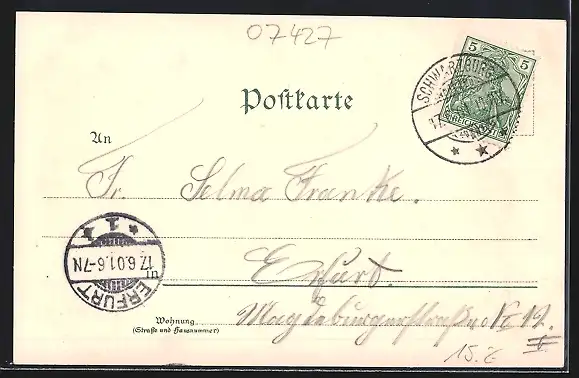 07427
5 5
SCHWARZBURG
Postkarte
An
Fr. Selma Franke.
Erfurt.
in
ERFURT
17.6.01.6-7N
1
Magdeburgerstraße No 19.
II
Wohnung
(Straße und Hausnummer)
15.-